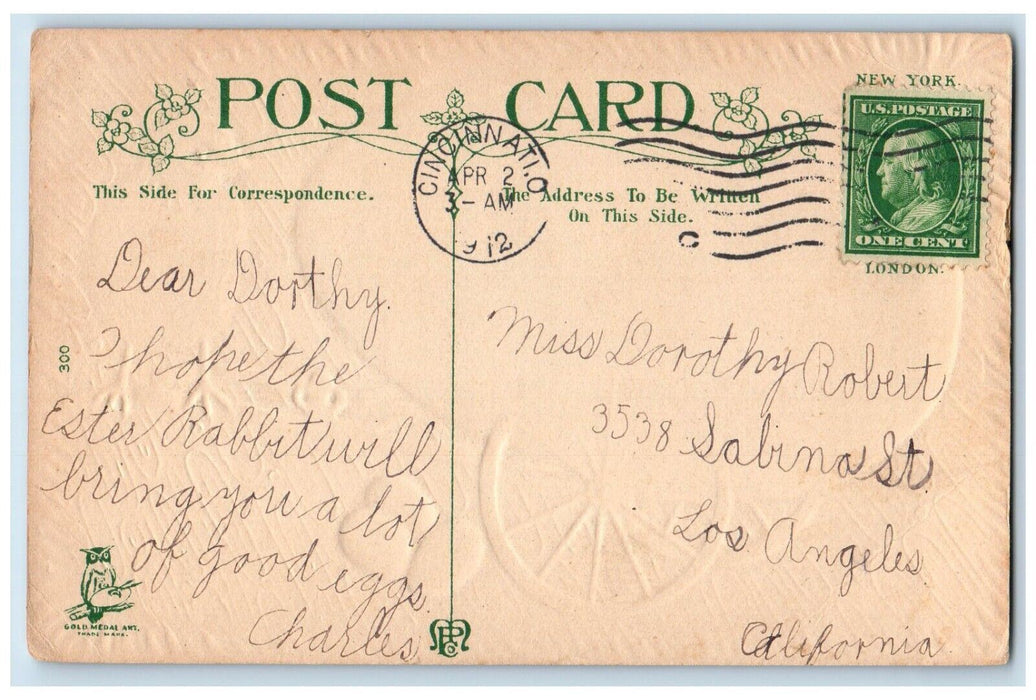 POST CARD
NEW YORK.
U.S. POSTAGE
ONE CENT
LONDON.
CINCINNATI, O
APR 2
3 - AM
1912
C
This Side For Correspondence.
The Address To Be Written
On This Side.
Dear Dorthy.
I hope the
Ester Rabbit will
bring you a lot
of good eggs.
Charles
300
GOLD MEDAL ART.
TRADE MARK.
Miss Dorothy Robert
3538 Sabina St.
Los Angeles
California.